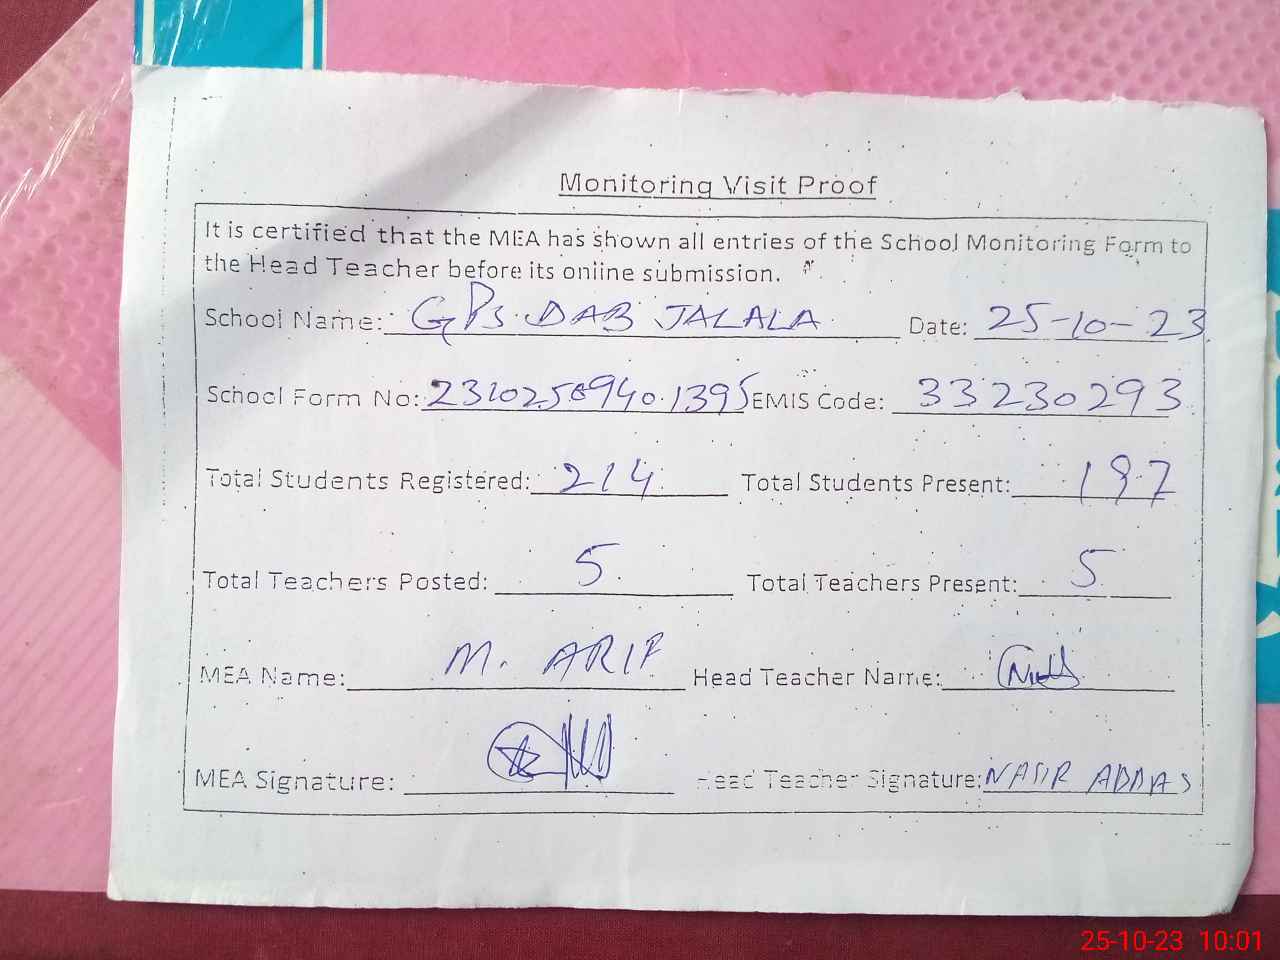 Monitoring Visit Proof
It is certified that the MEA has shown all entries of the School Monitoring Form to
the Head Teacher before its online submission.
School Name: GPS DAB JALALA Date: 25-10-23
School Form No: 23102509401395 EMIS Code: 33230293
Total Students Registered: 214 Total Students Present: 197
Total Teachers Posted: 5 Total Teachers Present: 5
MEA Name: M. ARIF Head Teacher Name:
MEA Signature: Head Teacher Signature: NASIR ABBAS
25-10-23 10:01